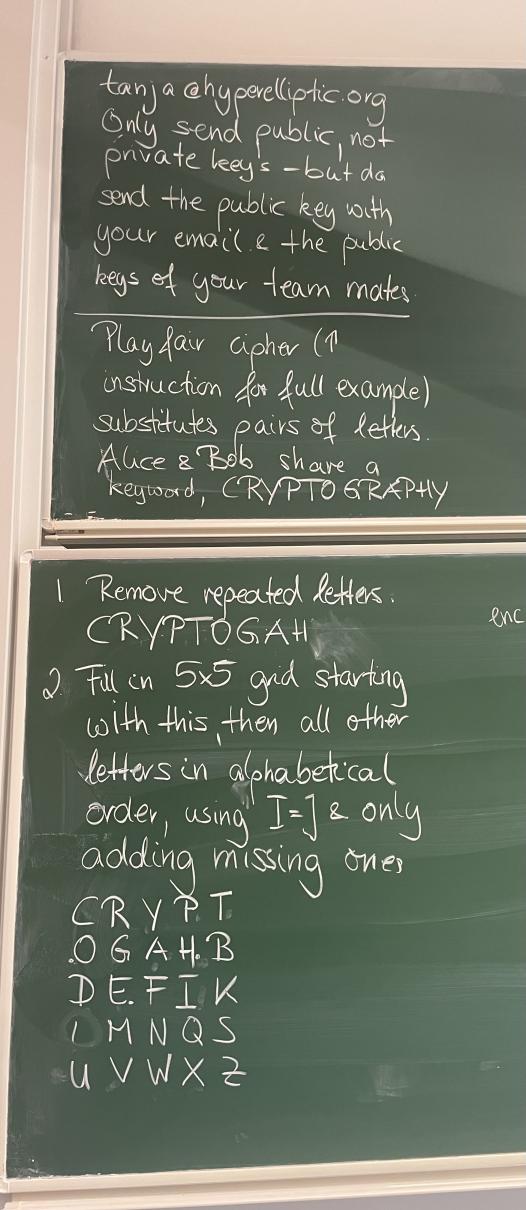 tanja@hyperelliptic.org
Only send public, not
private keys - but do
send the public key with
your email & the public
keys of your team mates.
Playfair cipher (↑
instruction for full example)
substitutes pairs of letters.
Alice & Bob share a
keyword, CRYPTOGRAPHY
1 Remove repeated letters.
enc
CRYPTOGAH
2. Fill in 5x5 grid starting
with this, then all other
letters in alphabetical
order, using I=J & only
adding missing ones
C R Y P T
O G A H B
D E F I K
L M N Q S
U V W X Z